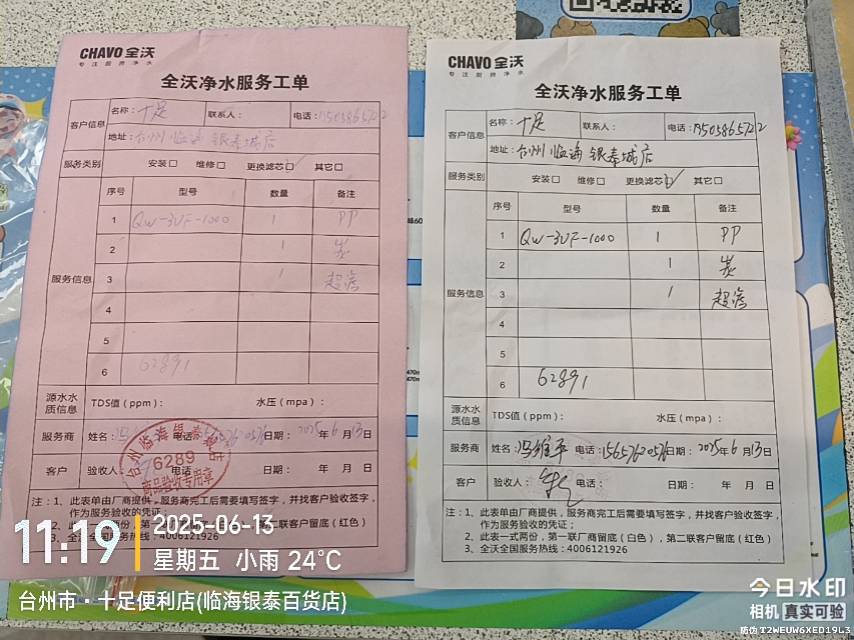 CHAVO 全沃
专注厨房净水
全沃净水服务工单
客户信息
名称：十足
联系人：
电话：
地址：台州 临海 银泰城店
服务类别
安装□ 维修□ 更换滤芯□ 其它□
服务信息
序号 型号 数量 备注
1 QW-3UF-1000 1 PP
2 1 炭
3 1 超滤
4
5
6 62891
源水水质信息
TDS值（ppm）： 水压（mpa）：
服务商
姓名： 电话： 日期：2025年6月13日
客户
验收人： 电话： 日期： 年 月 日
台州临海银泰城店
6289
商品验收专用章
注：1、此表单由厂商提供，服务商完工后需要填写签字，并找客户验收签字，
作为服务的凭证；
2、此表一式两份，第一联厂商留底（白色），第二联客户留底（红色）
3、全沃全国服务热线：4006121926
CHAVO 全沃
专注厨房净水
全沃净水服务工单
客户信息
名称：十足
联系人：
电话：15058657212
地址：台州 临海 银泰城店
服务类别
安装□ 维修□ 更换滤芯☑ 其它□
服务信息
序号 型号 数量 备注
1 QW-3UF-1000 1 PP
2 1 炭
3 1 超滤
4
5
6 62891
源水水质信息
TDS值（ppm）： 水压（mpa）：
服务商
姓名：冯维平 电话：15657620576 日期：2025年6月13日
客户
验收人： 电话： 日期： 年 月 日
注：1、此表单由厂商提供，服务商完工后需要填写签字，并找客户验收签字，
作为服务的凭证；
2、此表一式两份，第一联厂商留底（白色），第二联客户留底（红色）
3、全沃全国服务热线：4006121926
11:19
2025-06-13
星期五 小雨 24℃
台州市·十足便利店(临海银泰百货店)
今日水印
相机 真实可验
防伪 T2WEUW6XED19L3